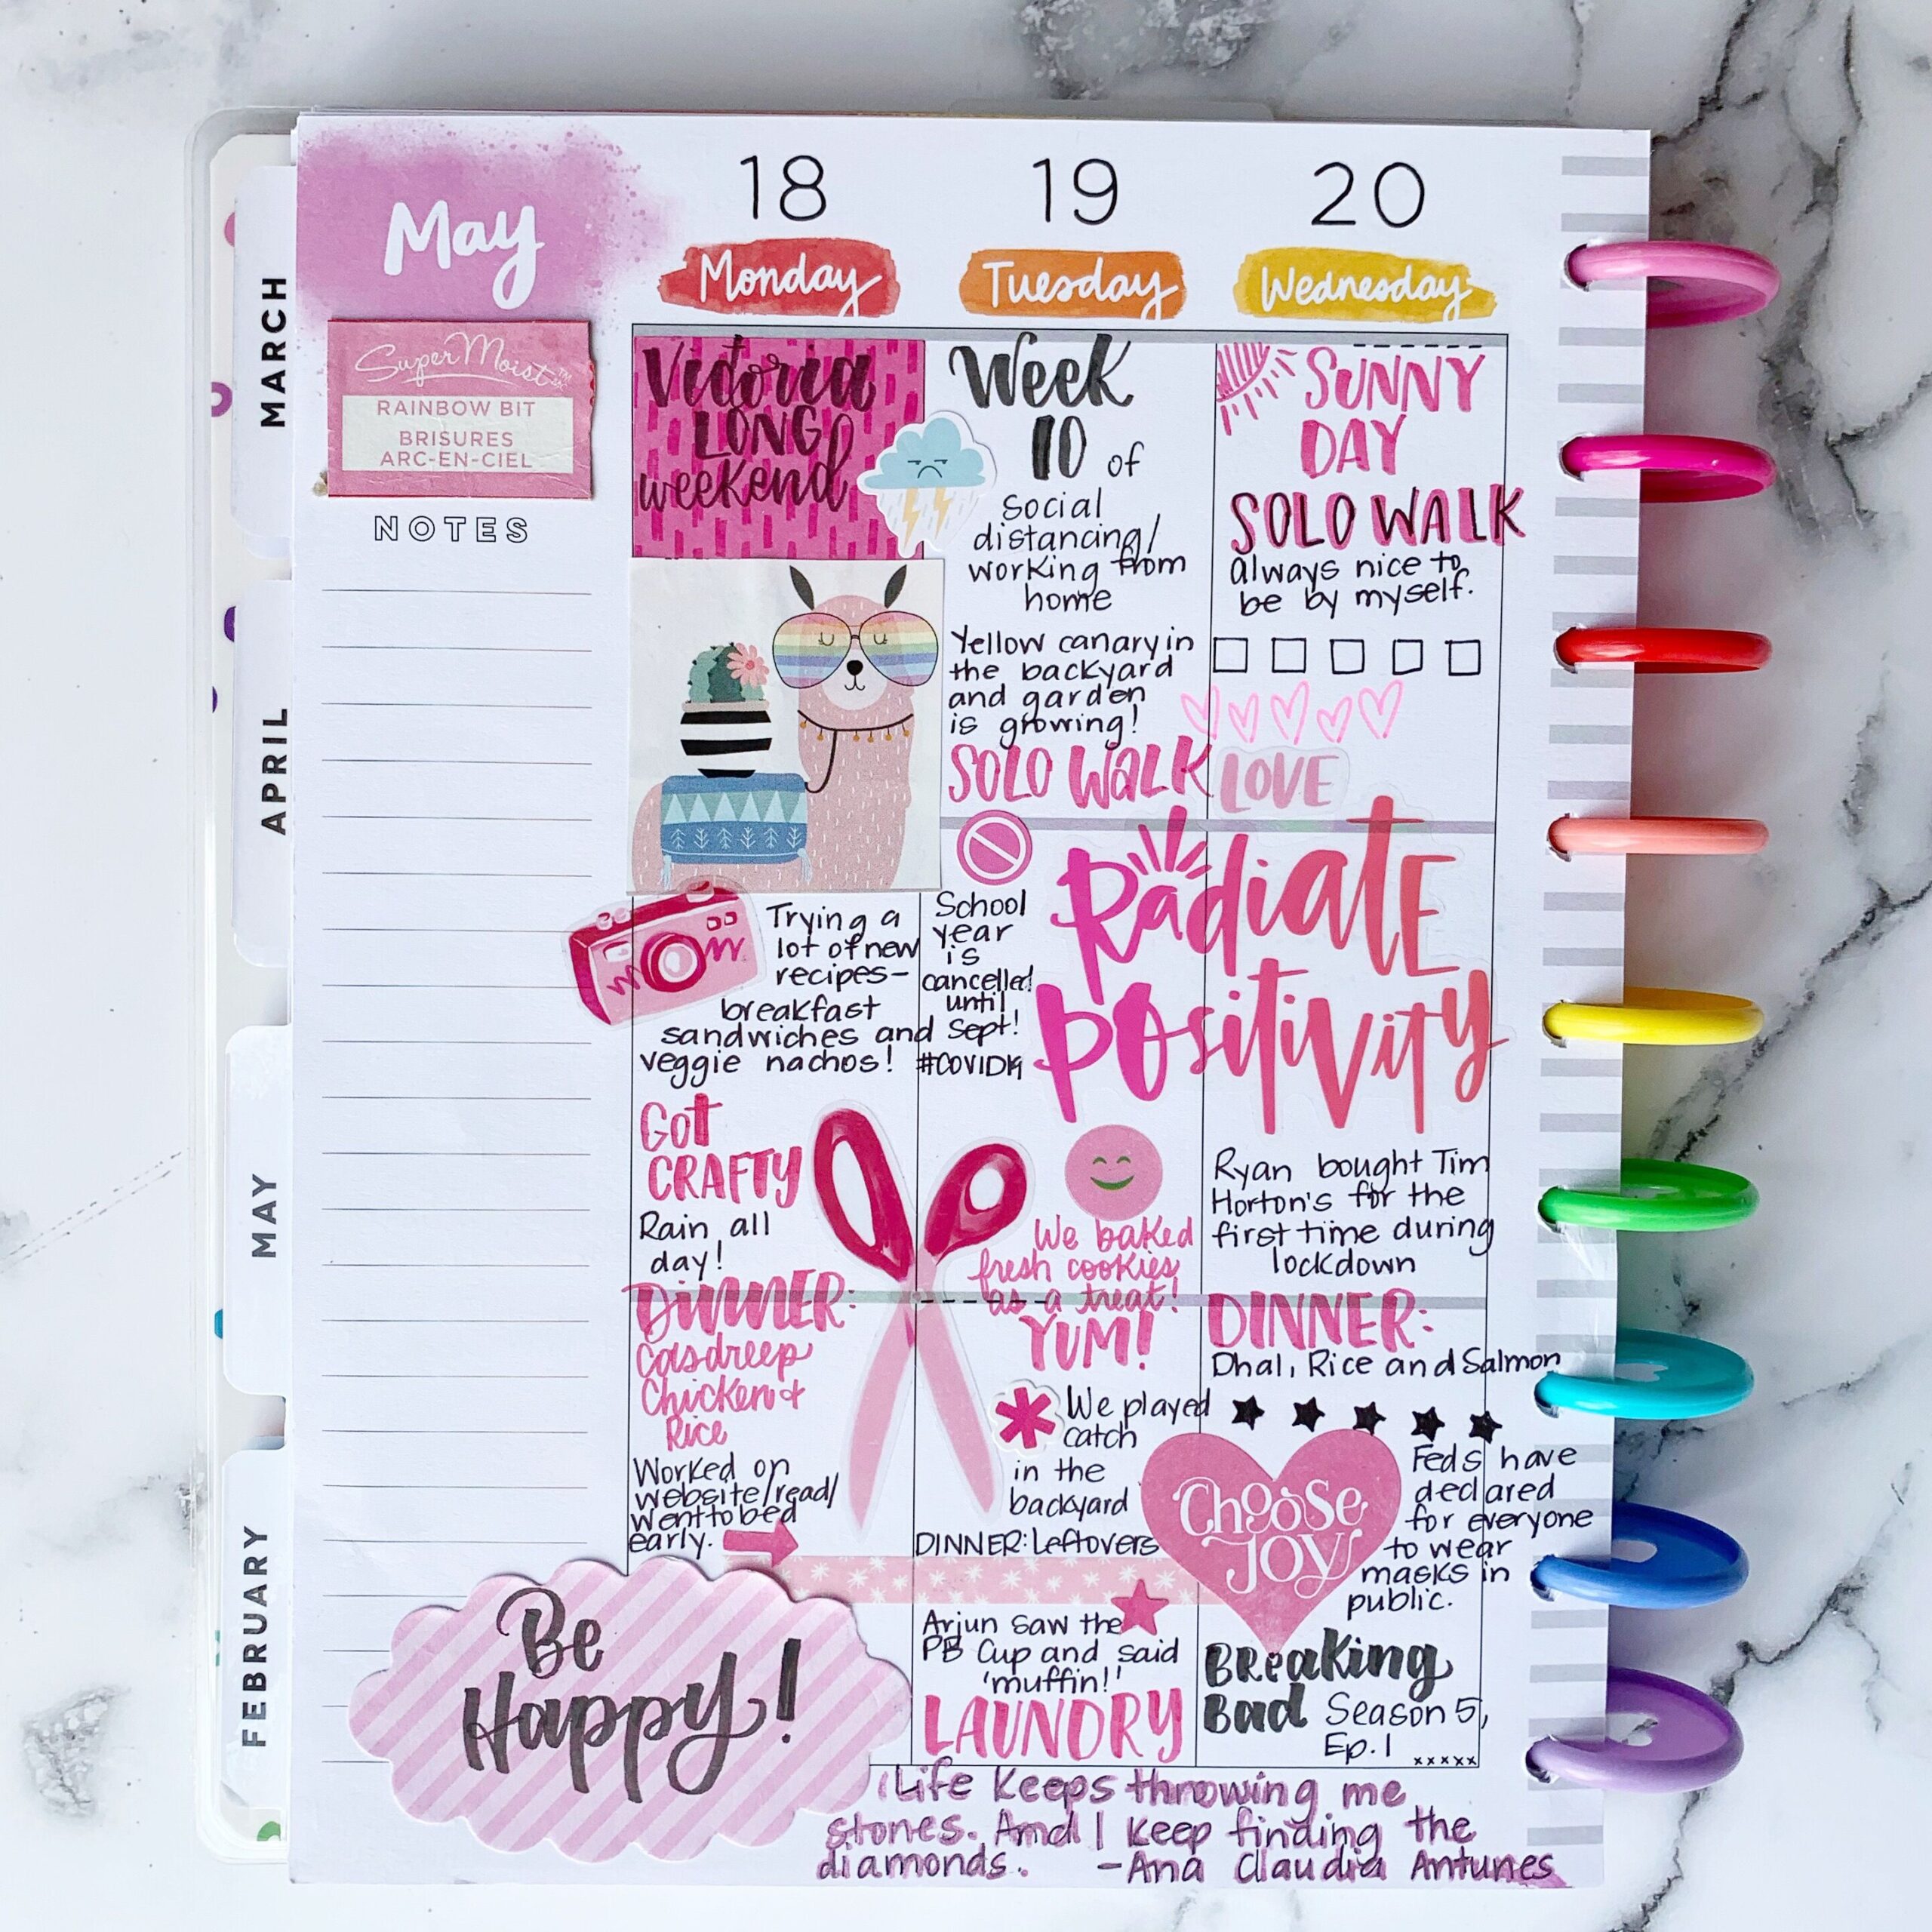 May
18
19
20
Monday
Tuesday
Wednesday
MARCH
APRIL
MAY
FEBRUARY
SuperMoist™
RAINBOW BIT
BRISURES
ARC-EN-CIEL
NOTES
Victoria
LONG
weekend
Trying a
lot of new
recipes-
breakfast
sandwiches and
veggie nachos!
Got
CRAFTY
Rain all
day!
DINNER:
Casdreep
Chicken &
Rice
Worked on
website/read/
went to bed
early.
Be
Happy!
Week
10 of
social
distancing/
working from
home
Yellow canary in
the backyard
and garden
is growing!
SOLO WALK
School
year
is
cancelled
until
Sept!
#COVID19
Radiate
Positivity
We baked
fresh cookies
as a treat!
YUM!
We played
catch
in the
backyard
DINNER: Leftovers
Arjun saw the
PB Cup and said
'muffin!'
LAUNDRY
SUNNY
DAY
SOLO WALK
always nice to
be by myself.
LOVE
Ryan bought Tim
Horton's for the
first time during
lockdown
DINNER:
Dhal, Rice and Salmon
Choose
JOY
Feds have
declared
for everyone
to wear
masks in
public.
Breaking
Bad Season 5,
Ep.1 xxxxx
Life keeps throwing me
stones. And I keep finding the
diamonds. -Ana Claudia Antunes